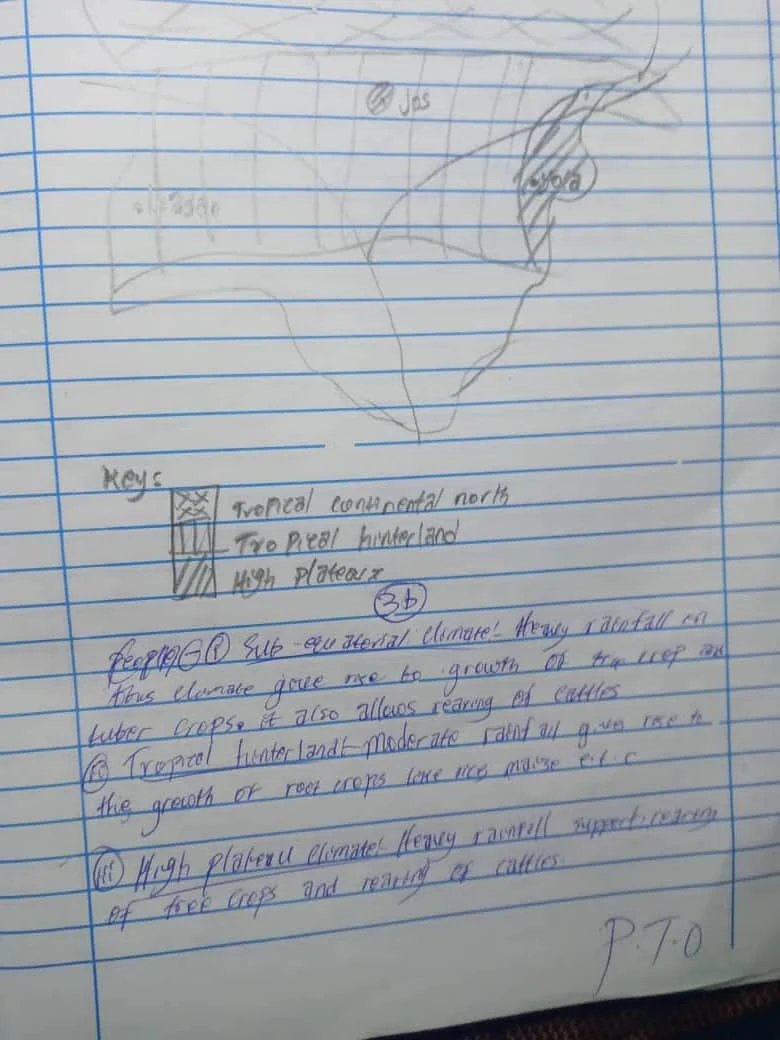 Jos
Yola
Keys
Tropical continental north
Tropical hinterland
High plateaux
3b
(i) Sub-equatorial climate:- Heavy rainfall in
this climate gave rise to growth of tree crop and
tuber crops. it also allows rearing of cattles
(ii) Tropical hinterland:- moderate rainfall gives rise to
the growth of root crops like rice, maize e.t.c
(iii) High plateau climate:- Heavy rainfall support rearing
of tree crops and rearing of cattles.
P.T.O